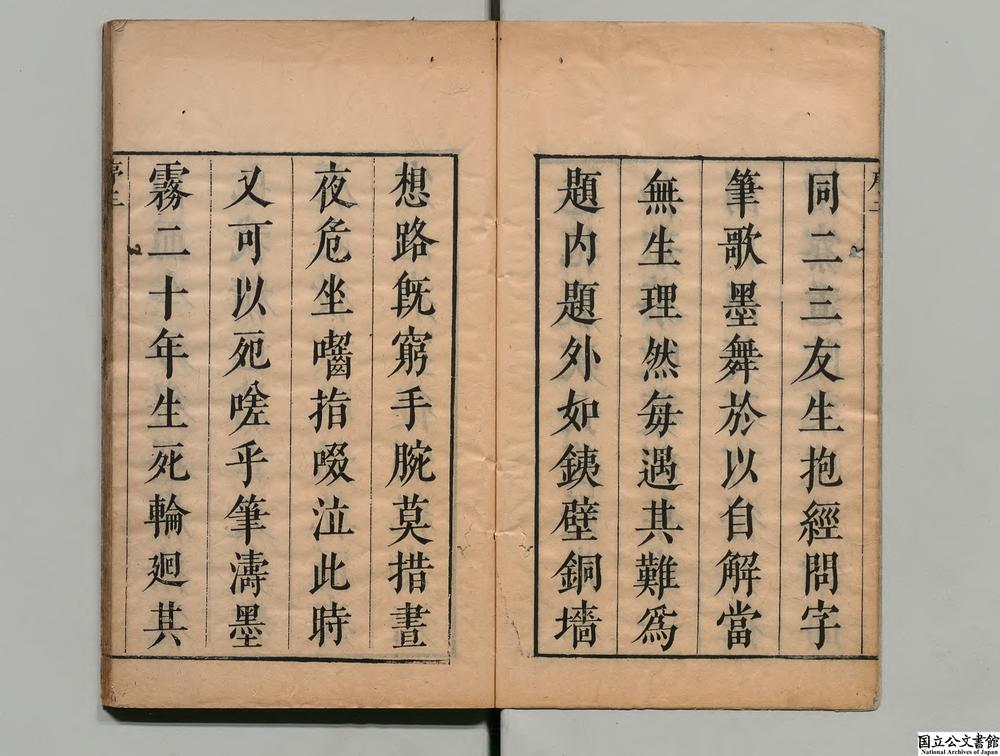 同二三友生抱經問字
筆歌墨舞於以自解當
無生理然每遇其難爲
題内題外如銕壁銅墻
想路旣窮手腕莫措晝
夜危坐嚙指啜泣此時
又可以死嗟乎筆濤墨
霧二十年生死輪廻其
序三
国立公文書館
National Archives of Japan